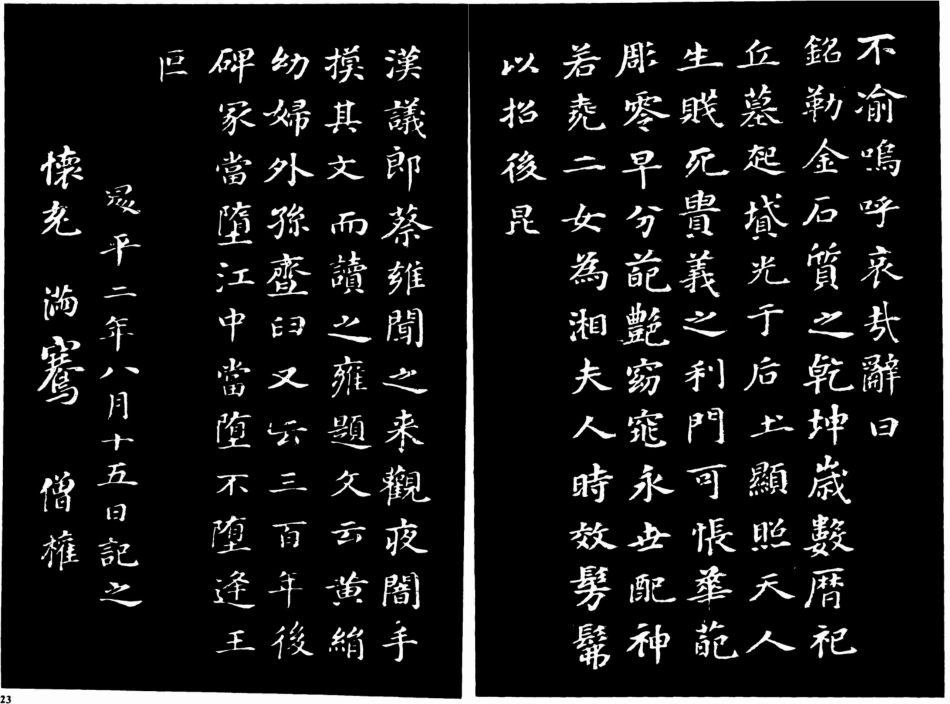 不渝嗚呼哀哉辭曰
銘勒金石質之乾坤歲數曆祀
丘墓起墳光于后土顯照天人
生賤死貴義之利門可悵華葩
彫零早分葩艷窈窕永世配神
若堯二女為湘夫人時效髣髴
以招後昆
漢議郎蔡雍聞之来觀夜闇手
摸其文而讀之雍題文云黄絹
幼婦外孫虀臼又云三百年後
碑冢當墮江中當墮不墮逢王
叵
平二年八月十五日記之
懷充 滿騫 僧權
23